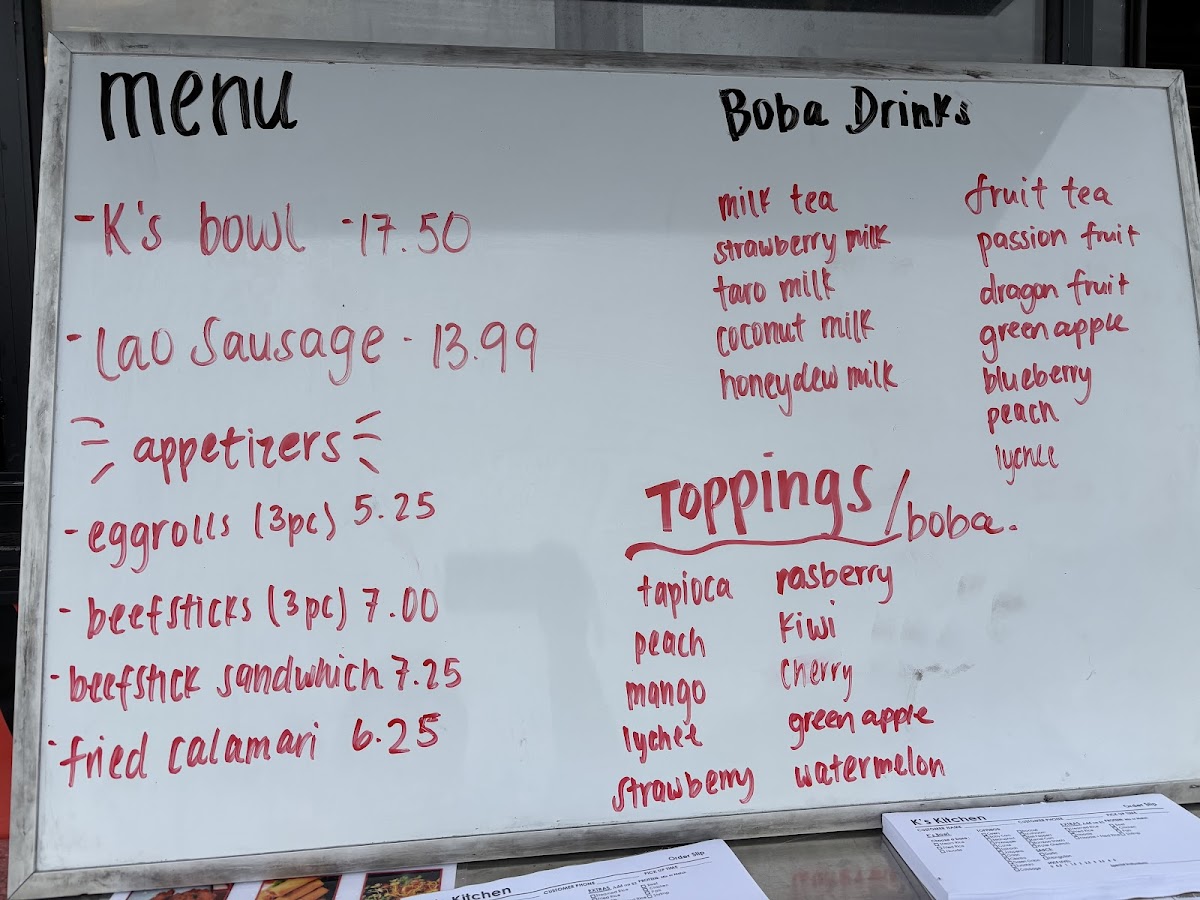 menu
-K's bowl -17.50
-Lao Sausage - 13.99
appetizers
-eggrolls (3pc) 5.25
-beefsticks (3pc) 7.00
-beefstick sandwhich 7.25
-fried calamari 6.25
Boba Drinks
milk tea
strawberry milk
taro milk
coconut milk
honeydew milk
fruit tea
passion fruit
dragon fruit
green apple
blueberry
peach
lychee
Toppings/boba.
tapioca
peach
mango
lychee
strawberry
rasberry
kiwi
cherry
green apple
watermelon
K's Kitchen
Order Slip
CUSTOMER NAME
CUSTOMER PHONE
PICK UP TIME
K's Kitchen
Order Slip
CUSTOMER PHONE
PICK UP TIME
EXTRAS